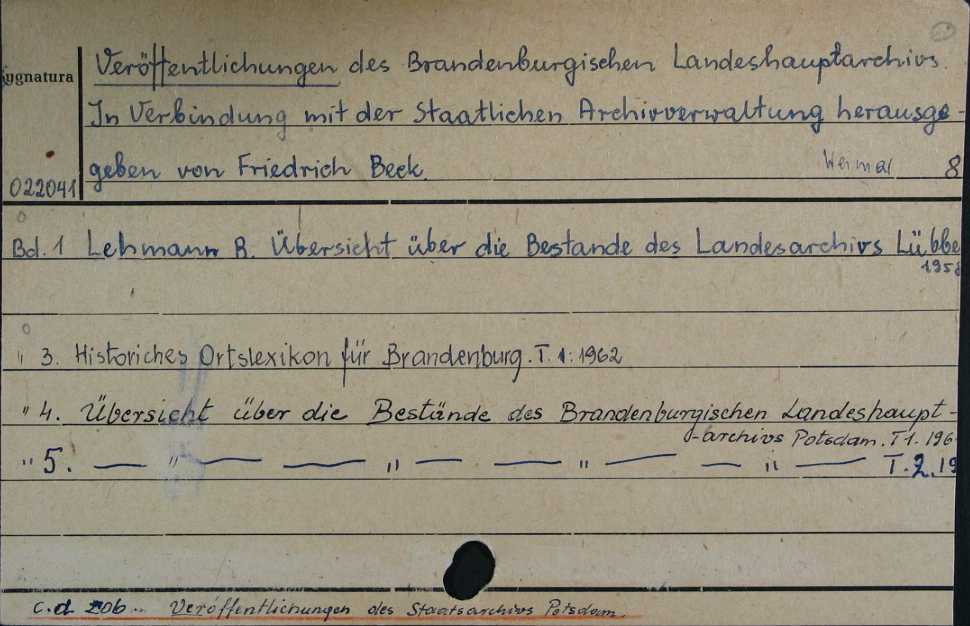 Veröffentlichungen des Brandenburgischen Landeshauptarchivs.
ygnatura
In Verbindung mit der Staatlichen Archivverwaltung herausge-
geben von Friedrich Beck. Weimar 8
022041
Bd. 1 Lehmann R. Übersicht über die Bestande des Landesarchivs Lübbe
195
" 3. Historiches Ortslexikon für Brandenburg. T. 1: 1962
" 4. Übersicht über die Bestände des Brandenburgischen Landeshaupt-
-archivs Potsdam. T 1. 196
" 5. — " — — " — — " — — " — T. 2. 19
c.d zob.. Veröffentlichungen des Staatsarchivs Potsdam.